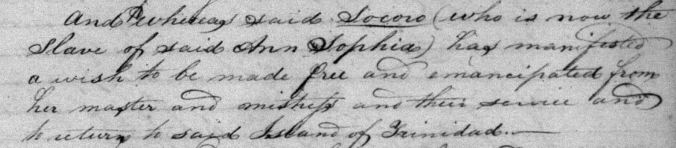 And whereas said Socoro (who is now the
Slave of said Ann Sophia) has manifested
a wish to be made free and emancipated from
her master and mistress and their service and
to return to said Island of Trinidad.—